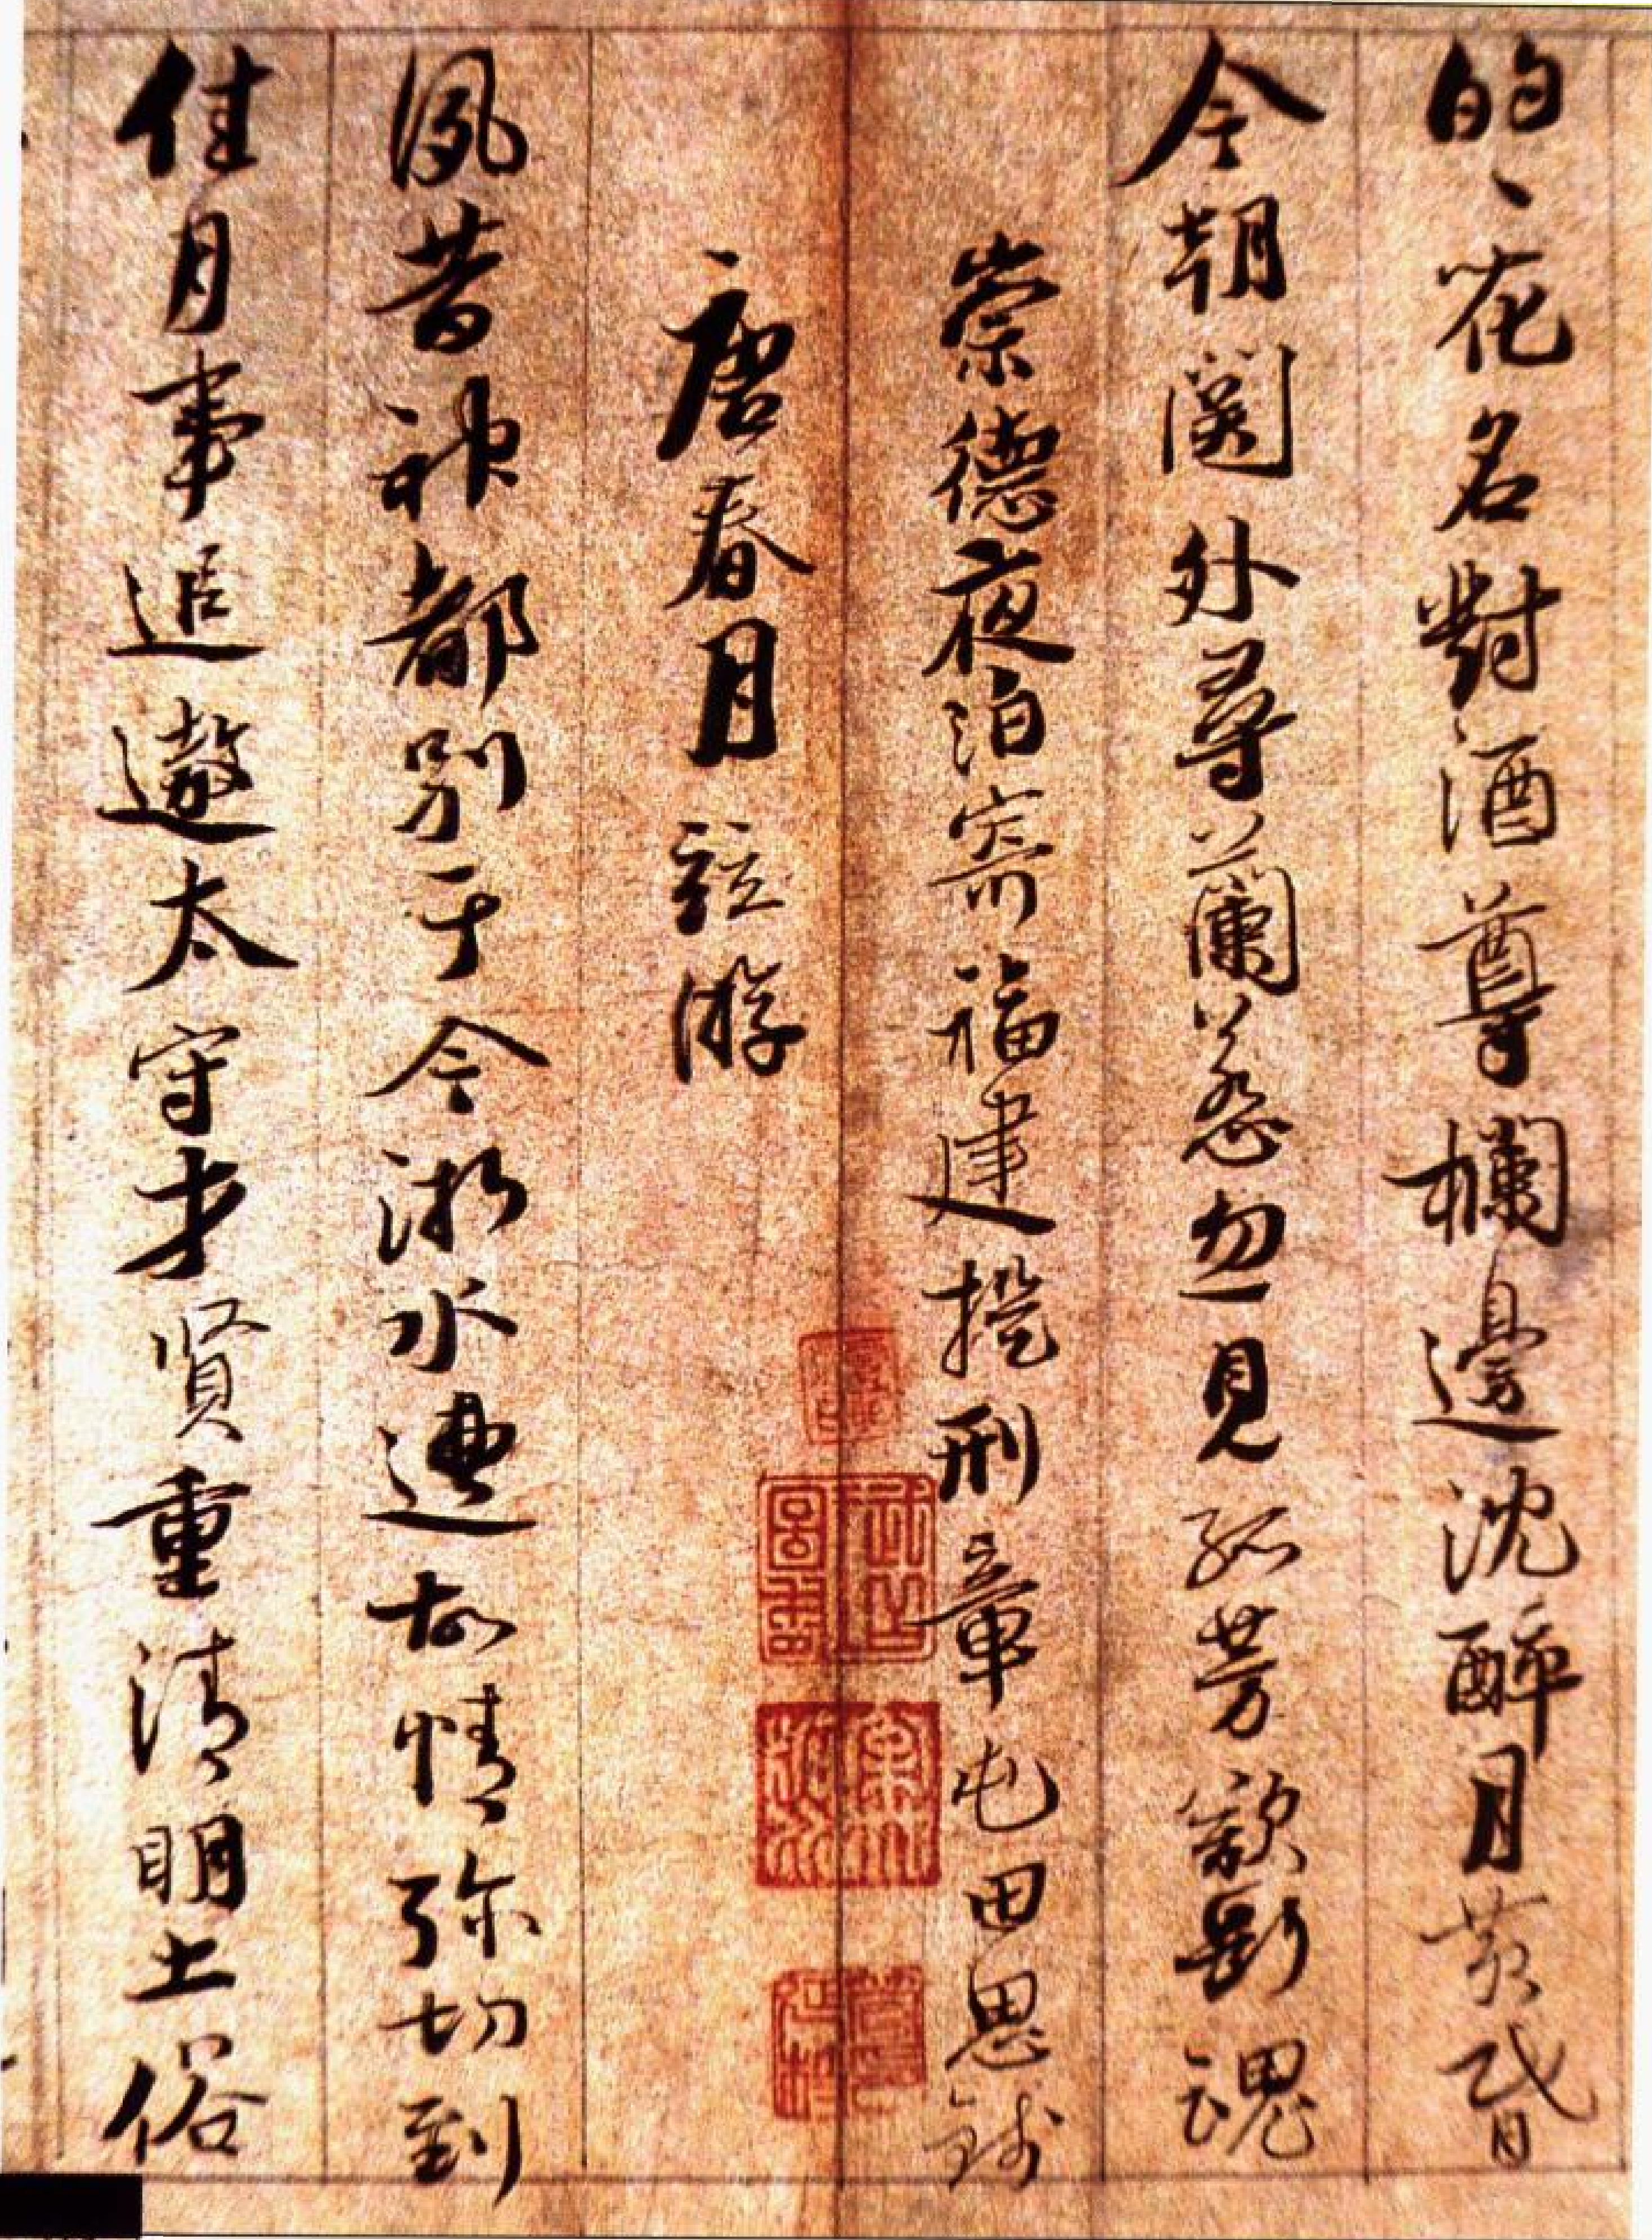 的々花名對酒尊欄邊沈醉月黃昏
今朝關外尋蘭蕊忽見孤芳欲斷魂
崇德夜泊寄福建提刑章屯田思錢
唐春月並游
夙昔神都別于今浙水遭故情弥切到
佳月事追遨太守才賢重清明土俗